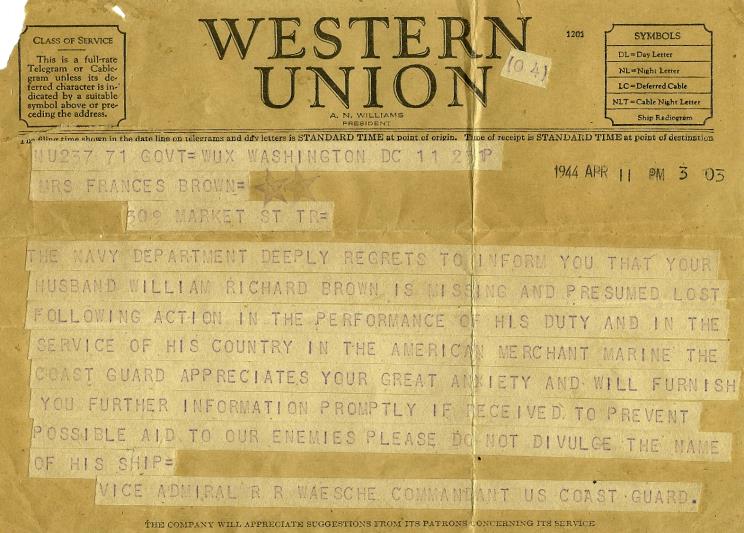 CLASS OF SERVICE
This is a full-rate
Telegram or Cable-
gram unless its de-
ferred character is in-
dicated by a suitable
symbol above or pre-
ceding the address.
WESTERN
UNION
(04)
A. N. WILLIAMS
PRESIDENT
1201
SYMBOLS
DL=Day Letter
NL=Night Letter
LC=Deferred Cable
NLT=Cable Night Letter
Ship Radiogram
filing time shown in the date line on telegrams and day letters is STANDARD TIME at point of origin. Time of receipt is STANDARD TIME at point of destination
NU237 71 GOVT=WUX WASHINGTON DC 11 251P
1944 APR 11 PM 3 03
MRS FRANCES BROWN=
309 MARKET ST TR=
THE NAVY DEPARTMENT DEEPLY REGRETS TO INFORM YOU THAT YOUR
HUSBAND WILLIAM RICHARD BROWN IS MISSING AND PRESUMED LOST
FOLLOWING ACTION IN THE PERFORMANCE OF HIS DUTY AND IN THE
SERVICE OF HIS COUNTRY IN THE AMERICAN MERCHANT MARINE THE
COAST GUARD APPRECIATES YOUR GREAT ANXIETY AND WILL FURNISH
YOU FURTHER INFORMATION PROMPTLY IF RECEIVED TO PREVENT
POSSIBLE AID TO OUR ENEMIES PLEASE DO NOT DIVULGE THE NAME
OF HIS SHIP=
VICE ADMIRAL R R WAESCHE COMMANDANT US COAST GUARD.
THE COMPANY WILL APPRECIATE SUGGESTIONS FROM ITS PATRONS CONCERNING ITS SERVICE